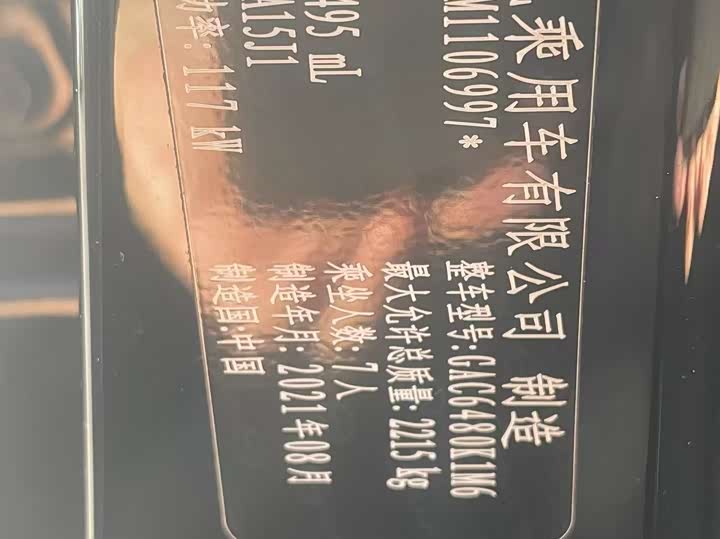 乘用车有限公司 制造
M1106997*
整车型号:GAC6480K1M6
495 mL
最大允许总质量:2215kg
A15J1
乘坐人数:7人
功率:117kW
制造年月:2021年08月
制造国:中国